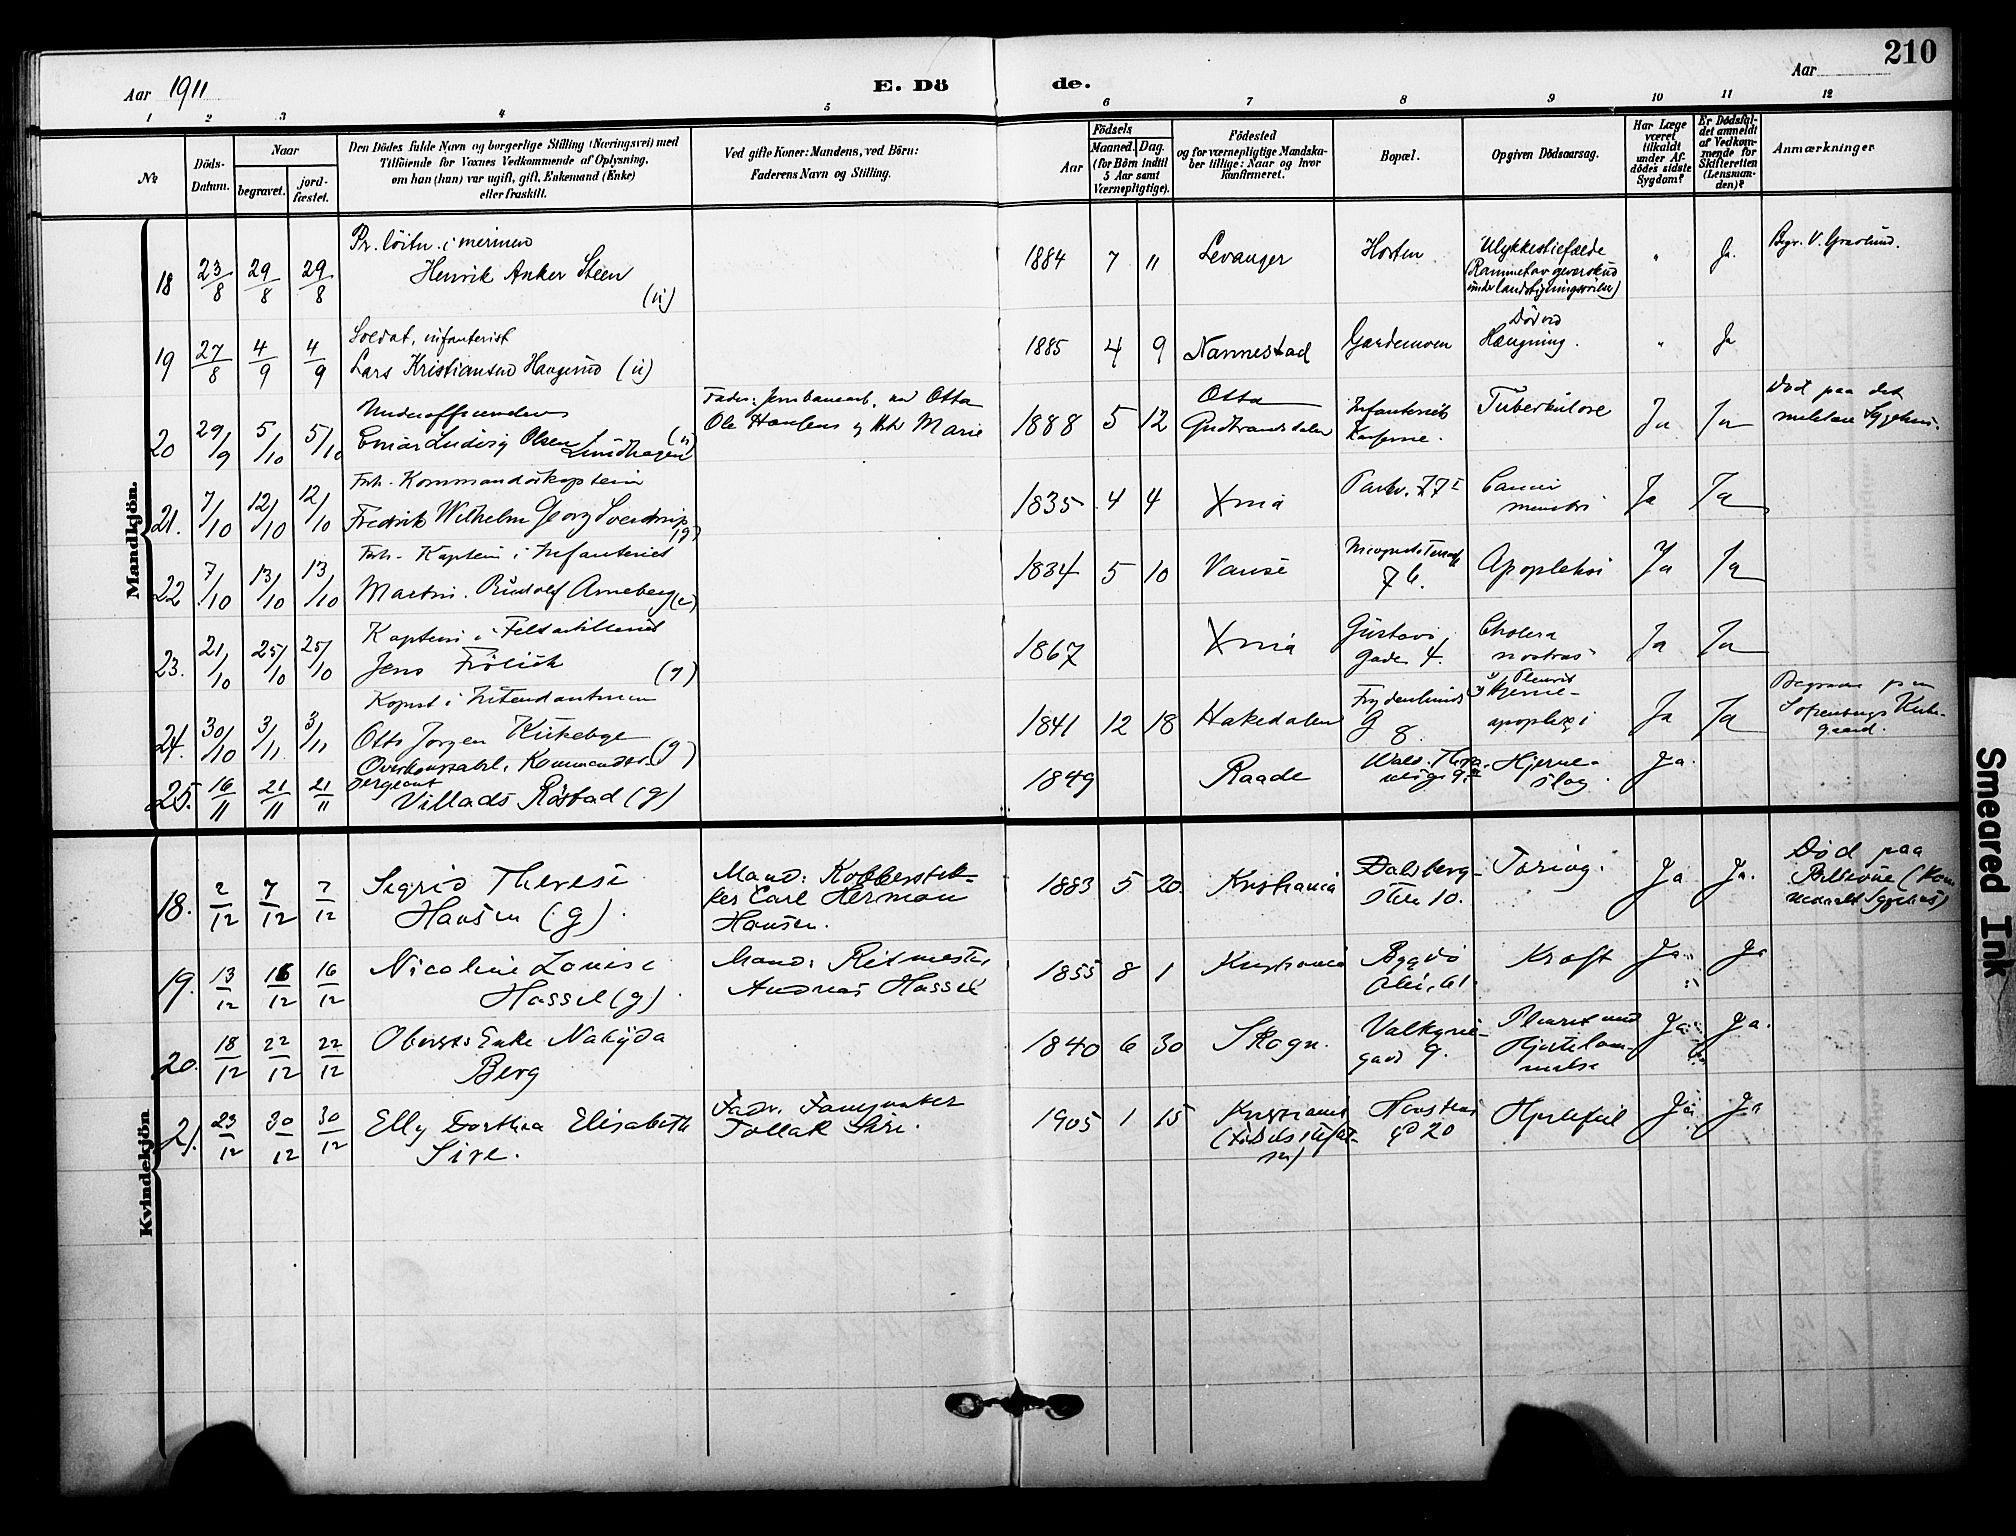 210
Aar 1911
E. Dö de.
Aar
1 2 3 4 5 6 7 8 9 10 11 12
№
Döds-
Datum.
Naar
begravet.
jord-
fæstet.
Den Dödes fulde Navn og borgerlige Stilling (Næringsvei) med
Tilföiende for Voxnes Vedkommende af Oplysning,
om han (hun) var ugift, gift, Enkemand (Enke)
eller fraskilt.
Ved gifte Koner: Mandens, ved Börn:
Faderens Navn og Stilling.
Födsels
Aar
Maaned.
Dag.
(for Börn indtil
5 Aar samt
Værnepligtige).
Födested
og for værnepligtige Mandska-
ber tillige: Naar og hvor
konfirmeret.
Bopæl.
Opgiven Dödsaarsag.
Har Læge
været
tilkaldt
under Af-
dödes sidste
Sygdom?
Er Dödsfal-
det anmeldt
af Vedkom-
mende for
Skifteretten
(Lensman-
den)?
Anmærkninger
Mandkjön.
18 23/8 29/8 29/8
Pr. löitn. i marinen
Henrik Anker Steen
(u)
1884 7 11 Levanger Horten
Ulykkestilfælde
(Rammet av geværskud
under landstigningsövelse)
" Ja.
Begr. V. Gravlund.
19 27/8 4/9 4/9
Soldat, infanterist
Lars Kristiansen Haugerud (u)
1885 4 9 Nannestad Gardemoen
Död ved
Hængning.
" Ja
20 29/9 5/10 5/10
Einar Ludvig Olsen Lundhagen (u)
Fader: Jernbanearb. ved Otta
Ole Hansen og Marie
1888 5 12
Otta
Gudbrandsdalen
Infanteriets
Kaserne.
Tuberkulose
Ja Ja
Död paa det
militære Sygehus.
21. 7/10 12/10 12/10
Fhv. Kommandörkaptein
Fredrik Wilhelm Georg Sverdrup
(g)
1835 4 4 Xnia
Parkv. 77 I
Ja Ja
22 7/10 13/10 13/10
Fhv. Kaptein i Infanteriet
Martin Rudolf Arneberg (e)
1834 5 10 Vanse
7 b.
Apopleksi
Ja Ja
23. 21/10 25/10 25/10
Kaptein i Feltartilleriet
Jens Frölich (g)
1867 Xnia
Gustavs
Gade 4.
Cholera
nostras
Ja Ja
24. 30/10 3/11 3/11
Kopist i Intendanturen
Otto Jørgen Kirkebye (g)
1841 12 18 Hakedalen
Frydenlunds
G 8.
Pleurit
Hjerne-
apoplexi
Ja Ja
Begravet paa
Sofienbergs Kirke-
gaard.
25. 16/11 21/11 21/11
Overkonstabel, Kommandér-
sergeant
Villads Röstad (g)
1849 Raade
Hjerne-
slag.
Ja
Kvindekjön
18. 2/12 7/12 7/12
Sigrid Therese
Hansen (g).
Mand: Kobberstik-
ker Carl Herman
Hansen.
1883 5 20 Kristiania
Dalsberg-
stien 10.
Ja Ja.
Død paa
19. 13/12 16/12 16/12
Nicoline Louise
Hassel (g).
Mand: Ritmester
Andreas Hassel
1855 8 1 Kristiania
Bygdö
Allé, 61.
Kræft
Ja Ja
20. 18/12 22/12 22/12
Oberst Enke
Berg
1840 6 30 Skogn.
Valkyrie-
gade 9.
Pleurit med
Hjertelam-
melse
Ja Ja.
21. 23/12 30/12 30/12
Elly Dorthea Elisabeth
Sire.
Fader: Fangevokter
Tollak Sire.
1905 1 15
Kristiania
(Födselsstiftel-
sen)
20
Hjertefeil
Ja Ja
Smeared Ink